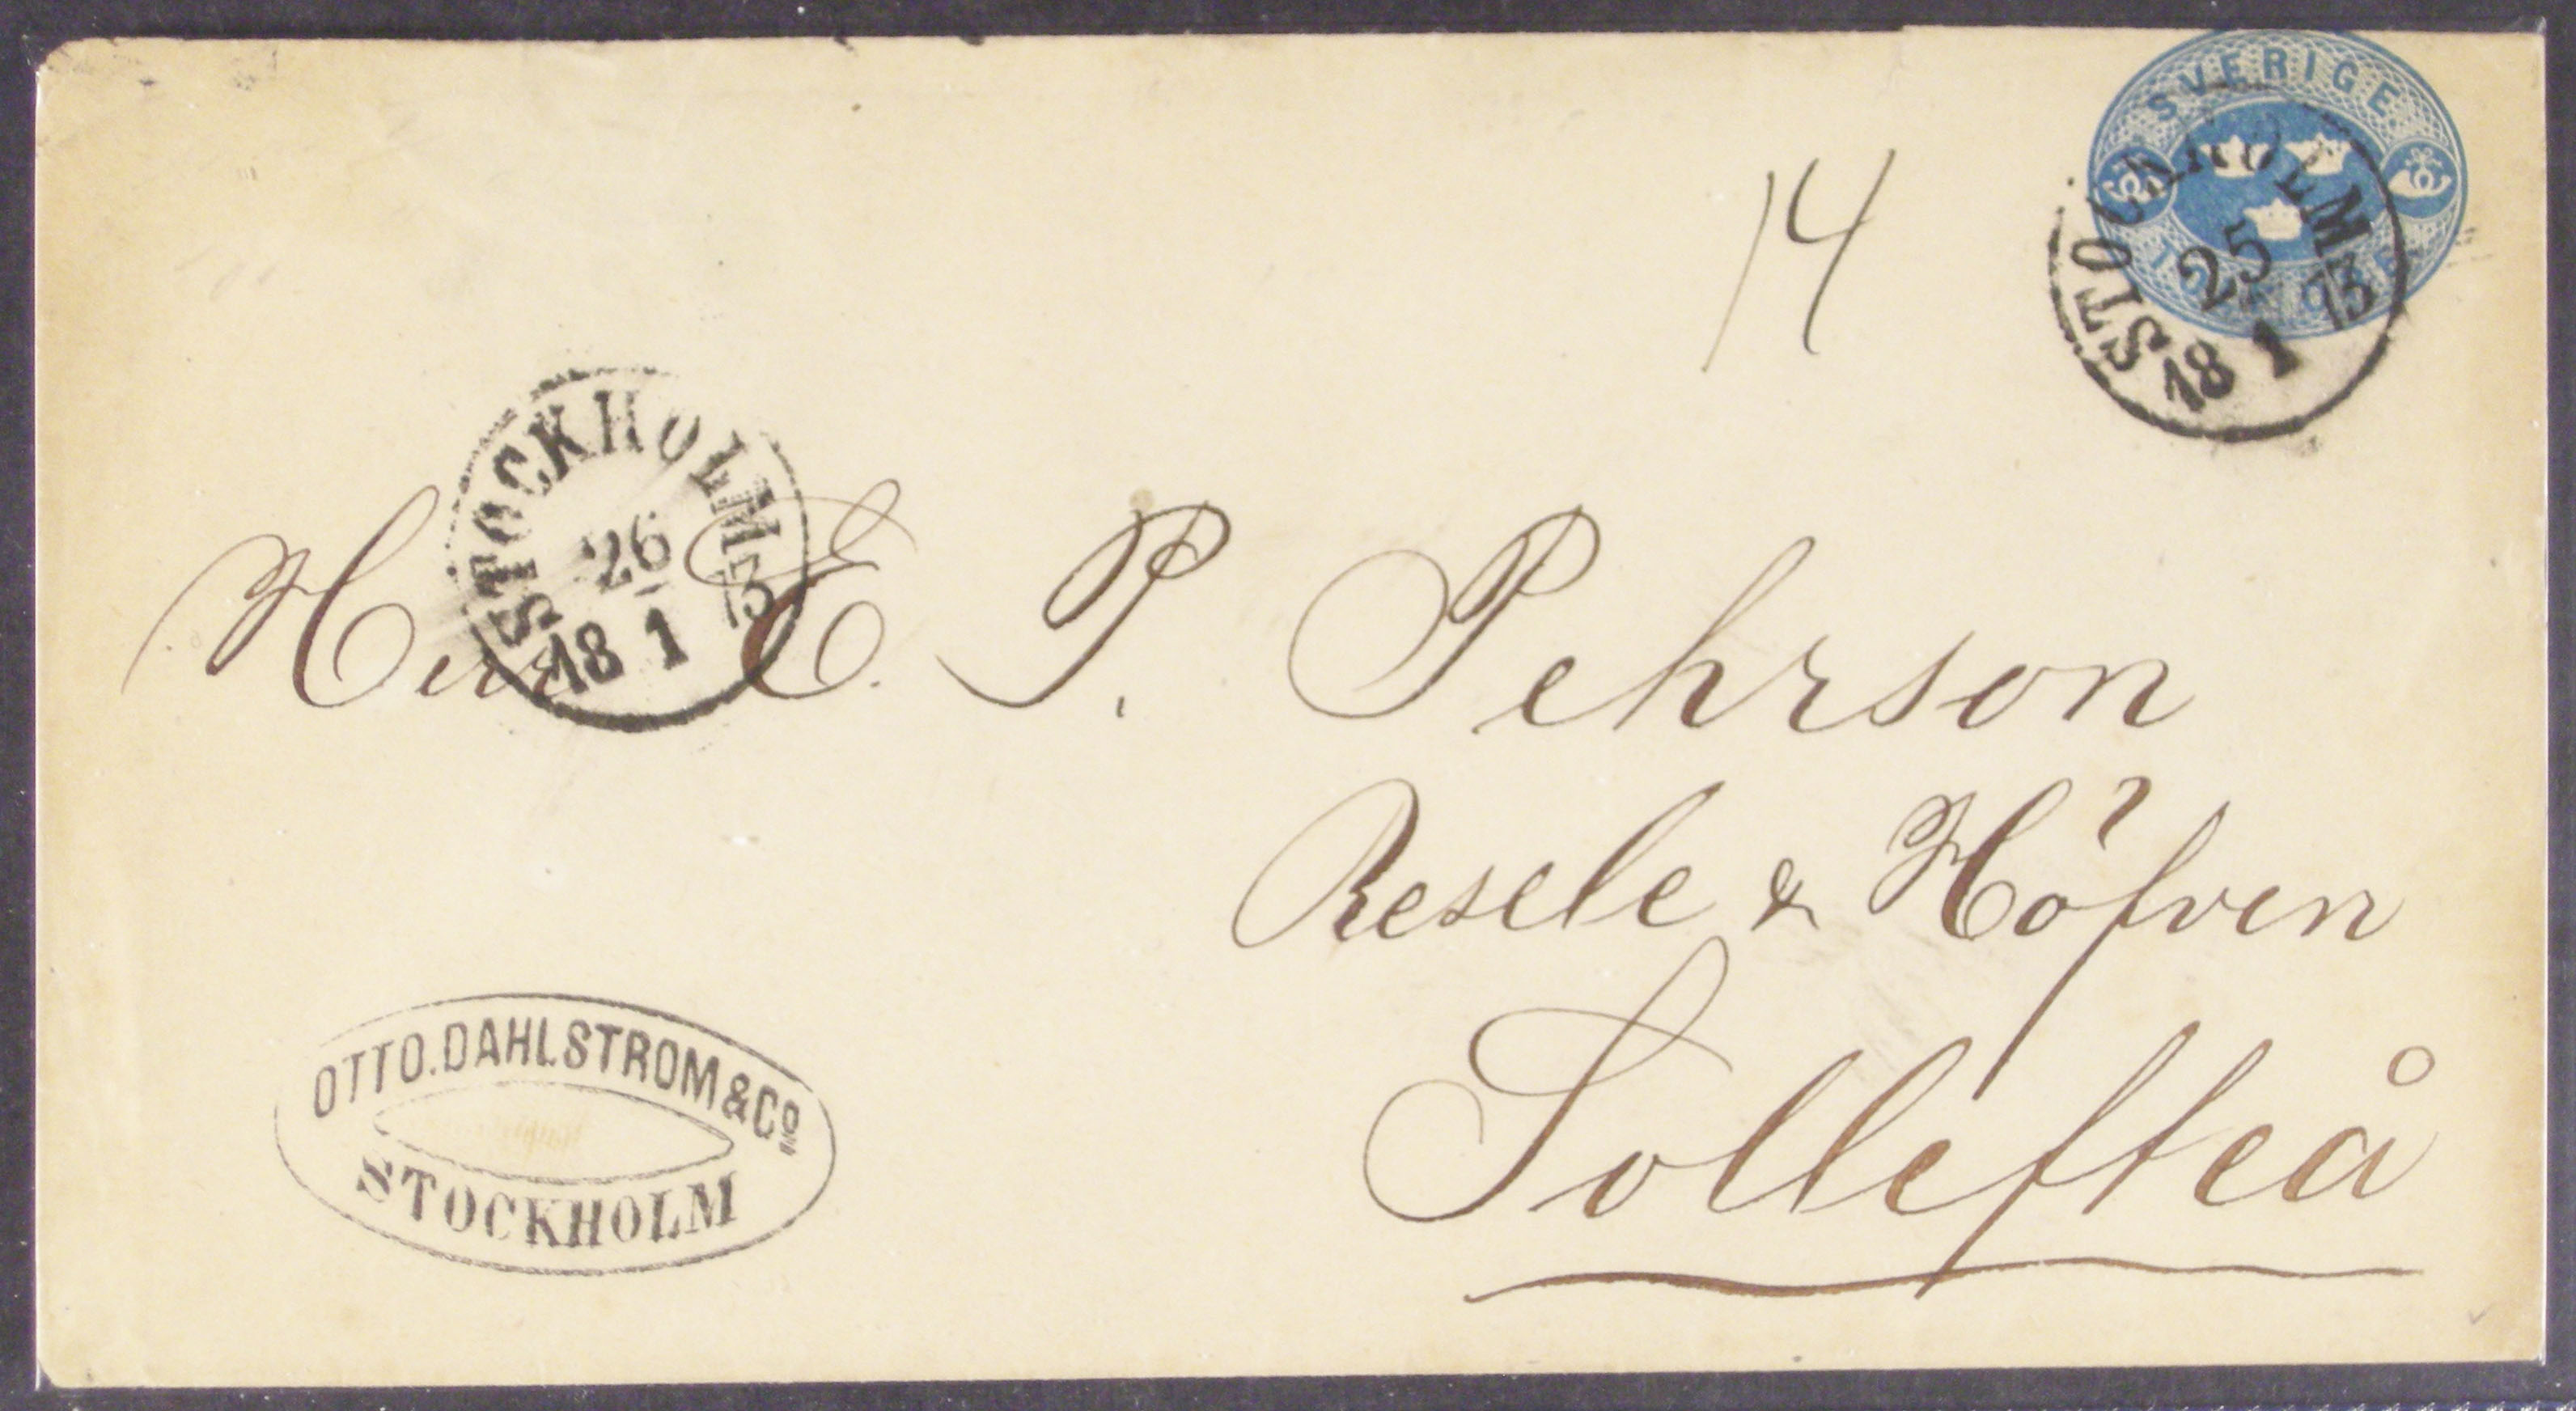 SVERIGE
STOCKHOLM
25
18 1 73
14
STOCKHOLM
26
18 1 73
Herr E. P. Pehrson
Resele & Höfven
Solefteå
OTTO. DAHLSTROM & Co
STOCKHOLM